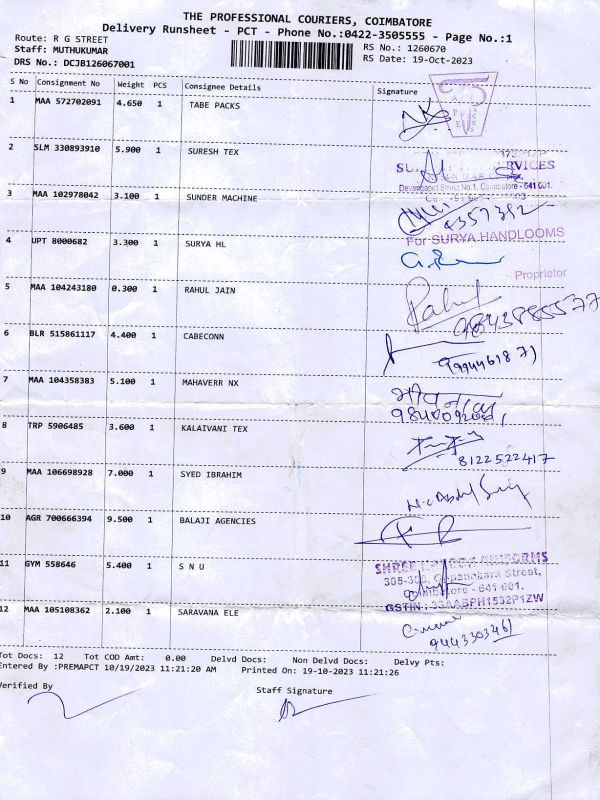 THE PROFESSIONAL COURIERS, COIMBATORE
Delivery Runsheet - PCT - Phone No.:0422-3505555 - Page No.:1
Route: R G STREET
Staff: MUTHUKUMAR
RS No.: 1260670
DRS No.: DCJB126067001
RS Date: 19-Oct-2023
S No Consignment No Weight PCS Consignee Details Signature
1 MAA 572702091 4.650 1 TABE PACKS
2 SLM 330893910 5.900 1 SURESH TEX
Devangapet Street No.1, Coimbatore - 641 001.
3 MAA 102978042 3.100 1 SUNDER MACHINE
For SURYA HANDLOOMS
4 UPT 8000682 3.300 1 SURYA HL
Proprietor
5 MAA 104243180 0.300 1 RAHUL JAIN
Rahul
6 BLR 515861117 4.400 1 CABECONN
7 MAA 104358383 5.100 1 MAHAVERR NX
8 TRP 5906485 3.600 1 KALAIVANI TEX
8122522417
9 MAA 106698928 7.000 1 SYED IBRAHIM
10 AGR 700666394 9.500 1 BALAJI AGENCIES
11 GYM 558646 5.400 1 S N U
Coimbatore - 641 001.
12 MAA 105108362 2.100 1 SARAVANA ELE
9443303461
Tot Docs: 12 Tot COD Amt: 0.00 Delvd Docs: Non Delvd Docs: Delvy Pts:
Entered By :PREMAPCT 10/19/2023 11:21:20 AM Printed On: 19-10-2023 11:21:26
Verified By Staff Signature